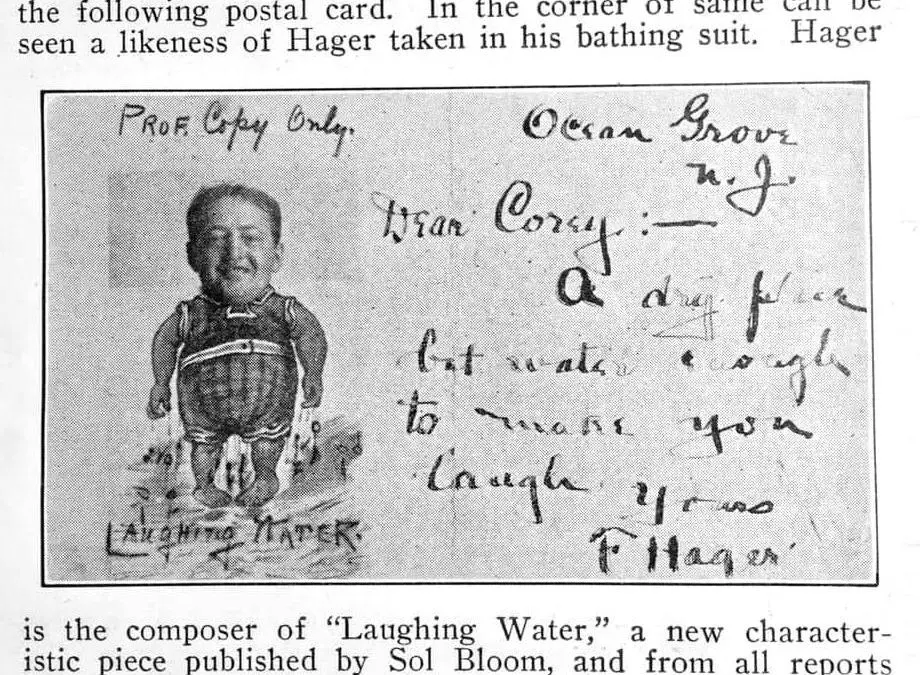 the following postal card. In the corner of same can be
seen a likeness of Hager taken in his bathing suit. Hager
PROF. Copy Only.
Ocean Grove
N. J.
Dear Corey :—
A dry place
but water enough
to make you
laugh
Yours
F Hager
LAUGHING WATER.
is the composer of “Laughing Water,” a new character-
istic piece published by Sol Bloom, and from all reports